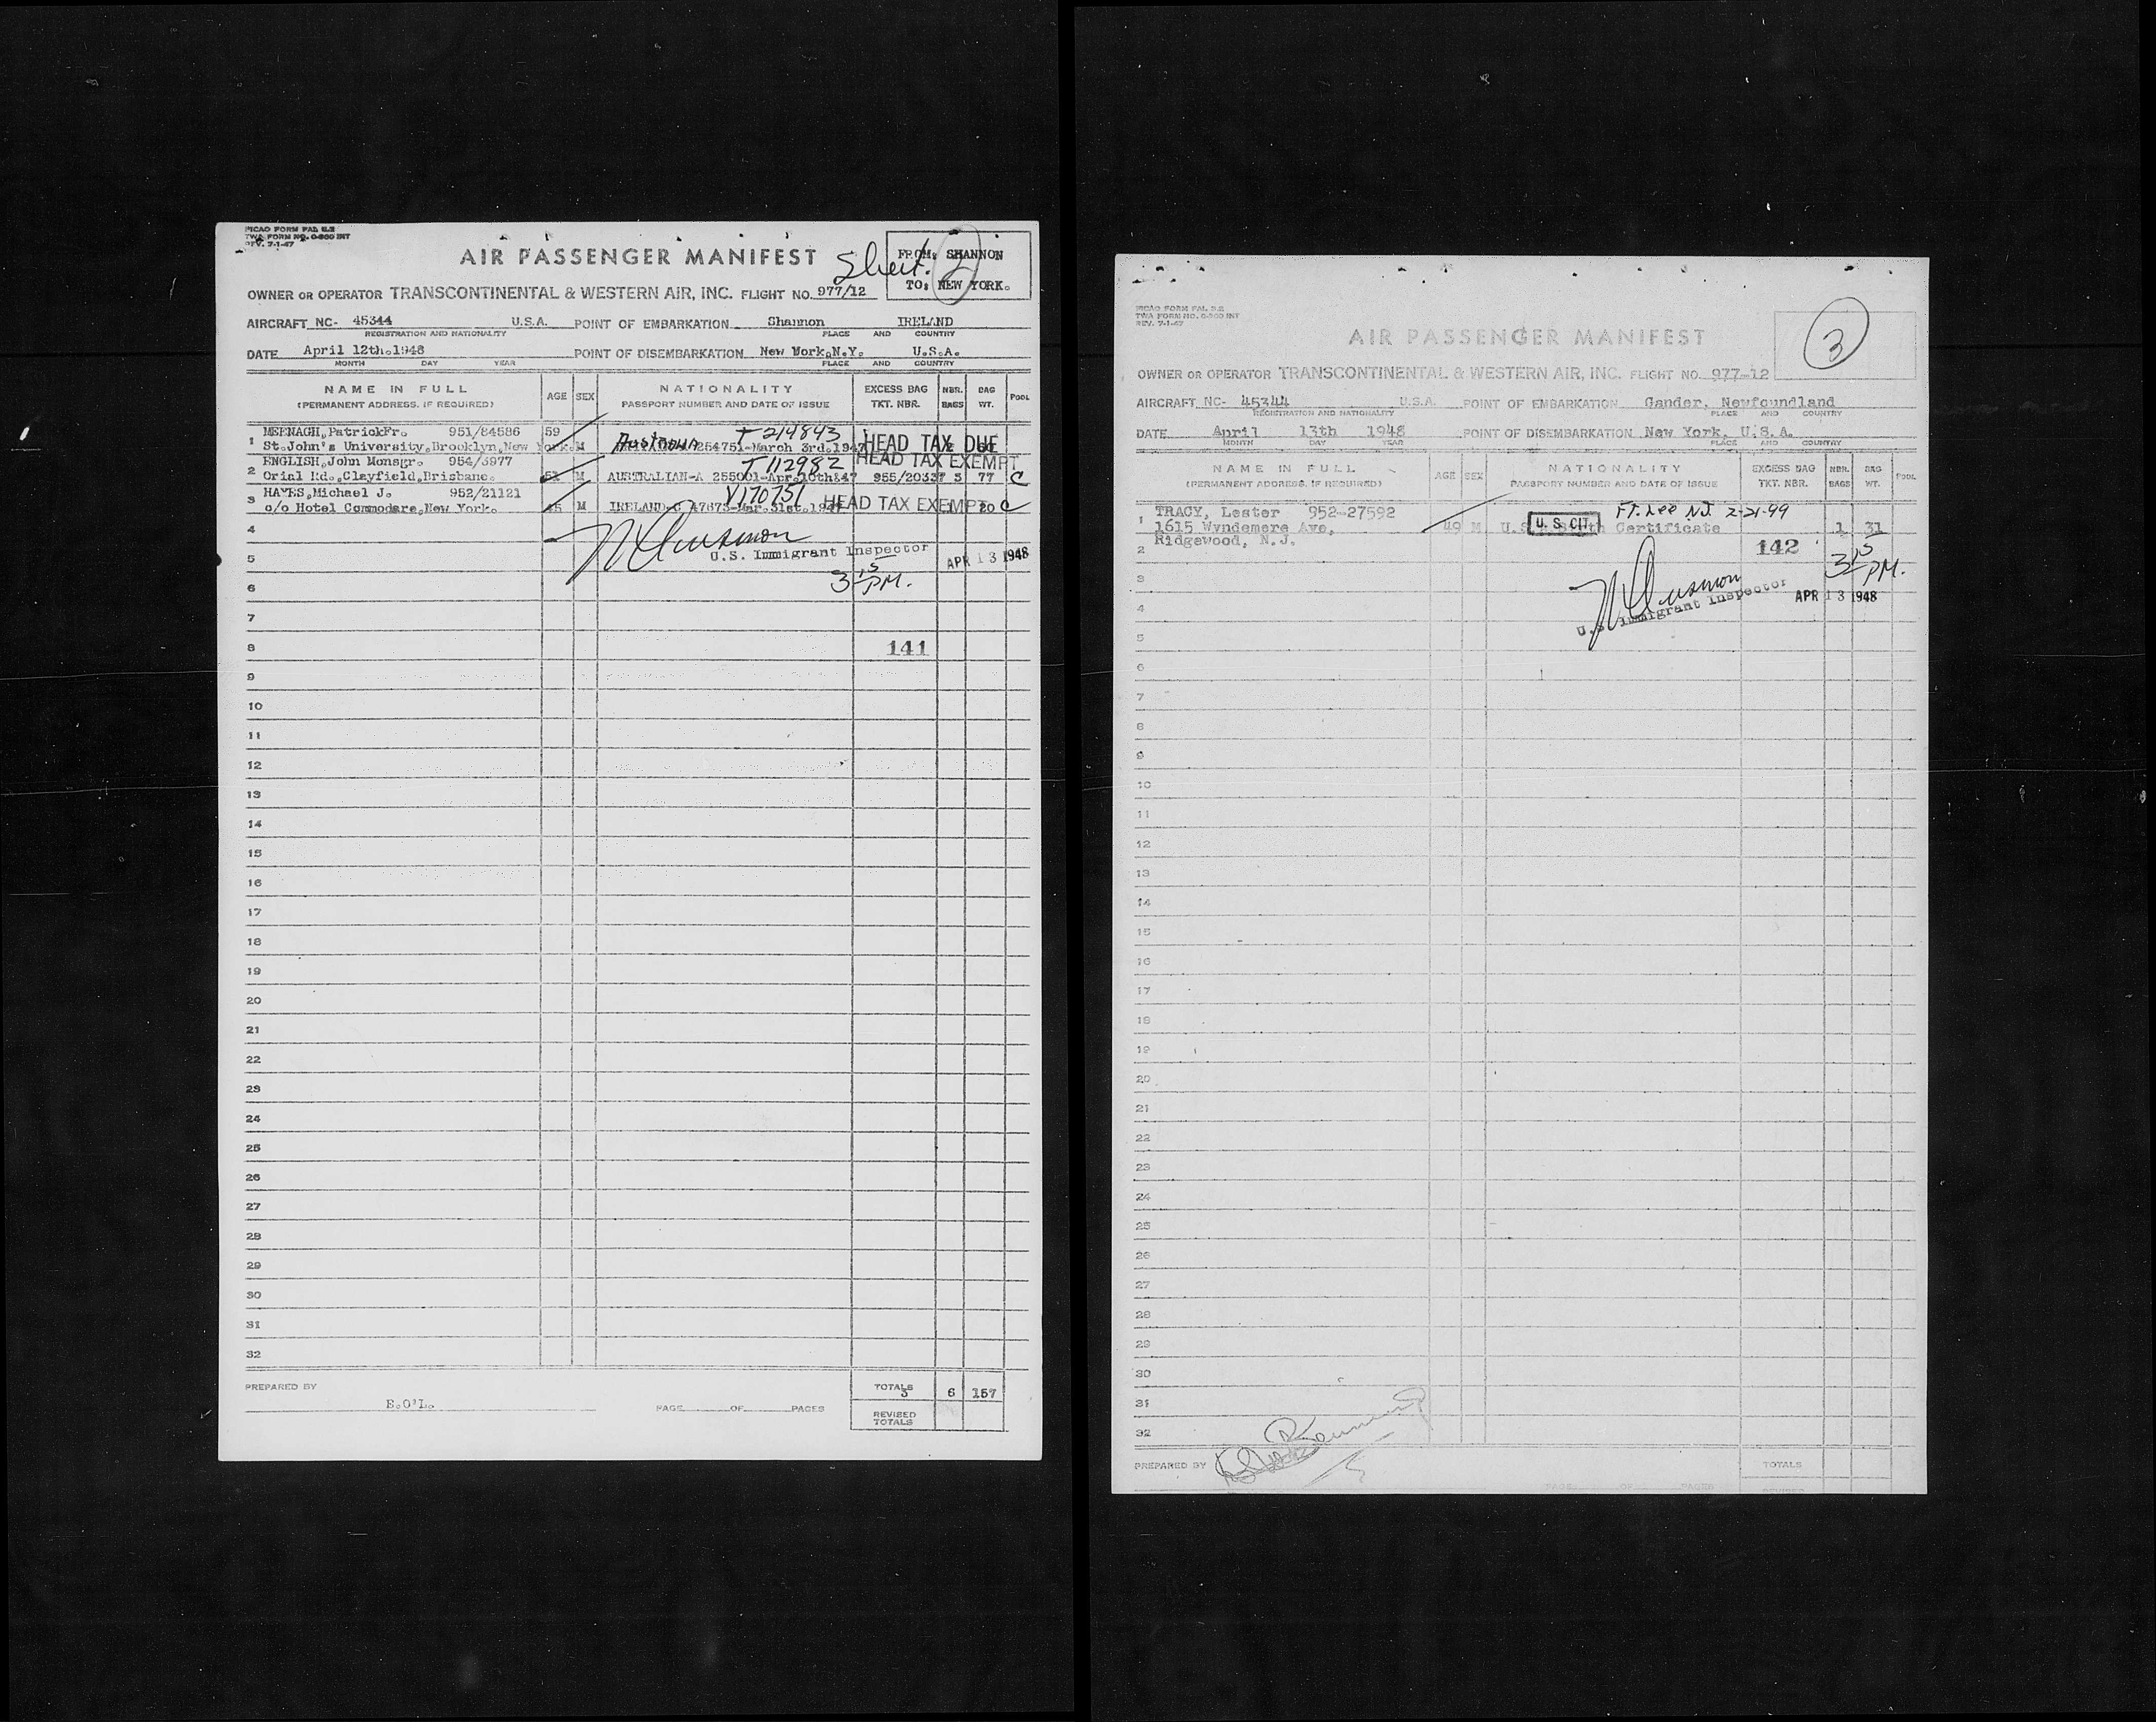 PICAO FORM FAL D.2
TWA FORM NO. O-900 INT
REV. 7-1-47
AIR PASSENGER MANIFEST
Sheet. 2
FROM: SHANNON
TO: NEW YORK.
OWNER OR OPERATOR TRANSCONTINENTAL & WESTERN AIR, INC. FLIGHT NO. 977/12
AIRCRAFT NC- 45344 U.S.A. POINT OF EMBARKATION Shannon IRELAND
REGISTRATION AND NATIONALITY PLACE AND COUNTRY
DATE April 12th.1948 POINT OF DISEMBARKATION New York,N.Y. U.S.A.
MONTH DAY YEAR PLACE AND COUNTRY
NAME IN FULL AGE SEX NATIONALITY EXCESS BAG NBR. BAG POOL
(PERMANENT ADDRESS, IF REQUIRED) PASSPORT NUMBER AND DATE OF ISSUE TKT. NBR. BAGS WT.
1 MEENAGH,PatrickFr. 951/84586 59 T-214843 HEAD TAX DUE
St.John's University,Brooklyn,New York. M 254751-March 3rd.1947
2 ENGLISH,John Monsgr. 954/3977 T112982 HEAD TAX EXEMPT
Orial Rd.,Clayfield,Brisbane. M AUSTRALIAN-A 255001-Apr.10th847 955/20337 3 77 C
3 HAYES,Michael J. 952/21121 V170751 HEAD TAX EXEMPT
c/o Hotel Commodare,New York. 45 M IRELAND-C 47673-Mar.31st.194 20 C
4
5 U.S. Immigrant Inspector APR 13 1948
6 3 15 PM.
7
8 141
9
10
11
12
13
14
15
16
17
18
19
20
21
22
23
24
25
26
27
28
29
30
31
32
PREPARED BY E.O'L. PAGE OF PAGES TOTALS 3 6 157
REVISED TOTALS
PICAO FORM FAL D.2
TWA FORM NO. O-900 INT
REV. 7-1-47
AIR PASSENGER MANIFEST
3
OWNER OR OPERATOR TRANSCONTINENTAL & WESTERN AIR, INC. FLIGHT NO. 977-12
AIRCRAFT NC- 45344 U.S.A. POINT OF EMBARKATION Gander, Newfoundland
REGISTRATION AND NATIONALITY PLACE AND COUNTRY
DATE April 13th 1948 POINT OF DISEMBARKATION New York, U.S.A.
MONTH DAY YEAR PLACE AND COUNTRY
NAME IN FULL AGE SEX NATIONALITY EXCESS BAG NBR. BAG POOL
(PERMANENT ADDRESS, IF REQUIRED) PASSPORT NUMBER AND DATE OF ISSUE TKT. NBR. BAGS WT.
1 TRACY, Lester 952-27592 Ft. Lee N.J. 2-21-99
1615 Wyndemere Ave, 49 M U.S. CIT. Certificate 1 31
Ridgewood, N.J.
2 142 3 15 PM.
3
4 U.S. Immigrant Inspector APR 13 1948
5
6
7
8
9
10
11
12
13
14
15
16
17
18
19
20
21
22
23
24
25
26
27
28
29
30
31
32
PREPARED BY TOTALS
PAGE OF PAGES REVISED